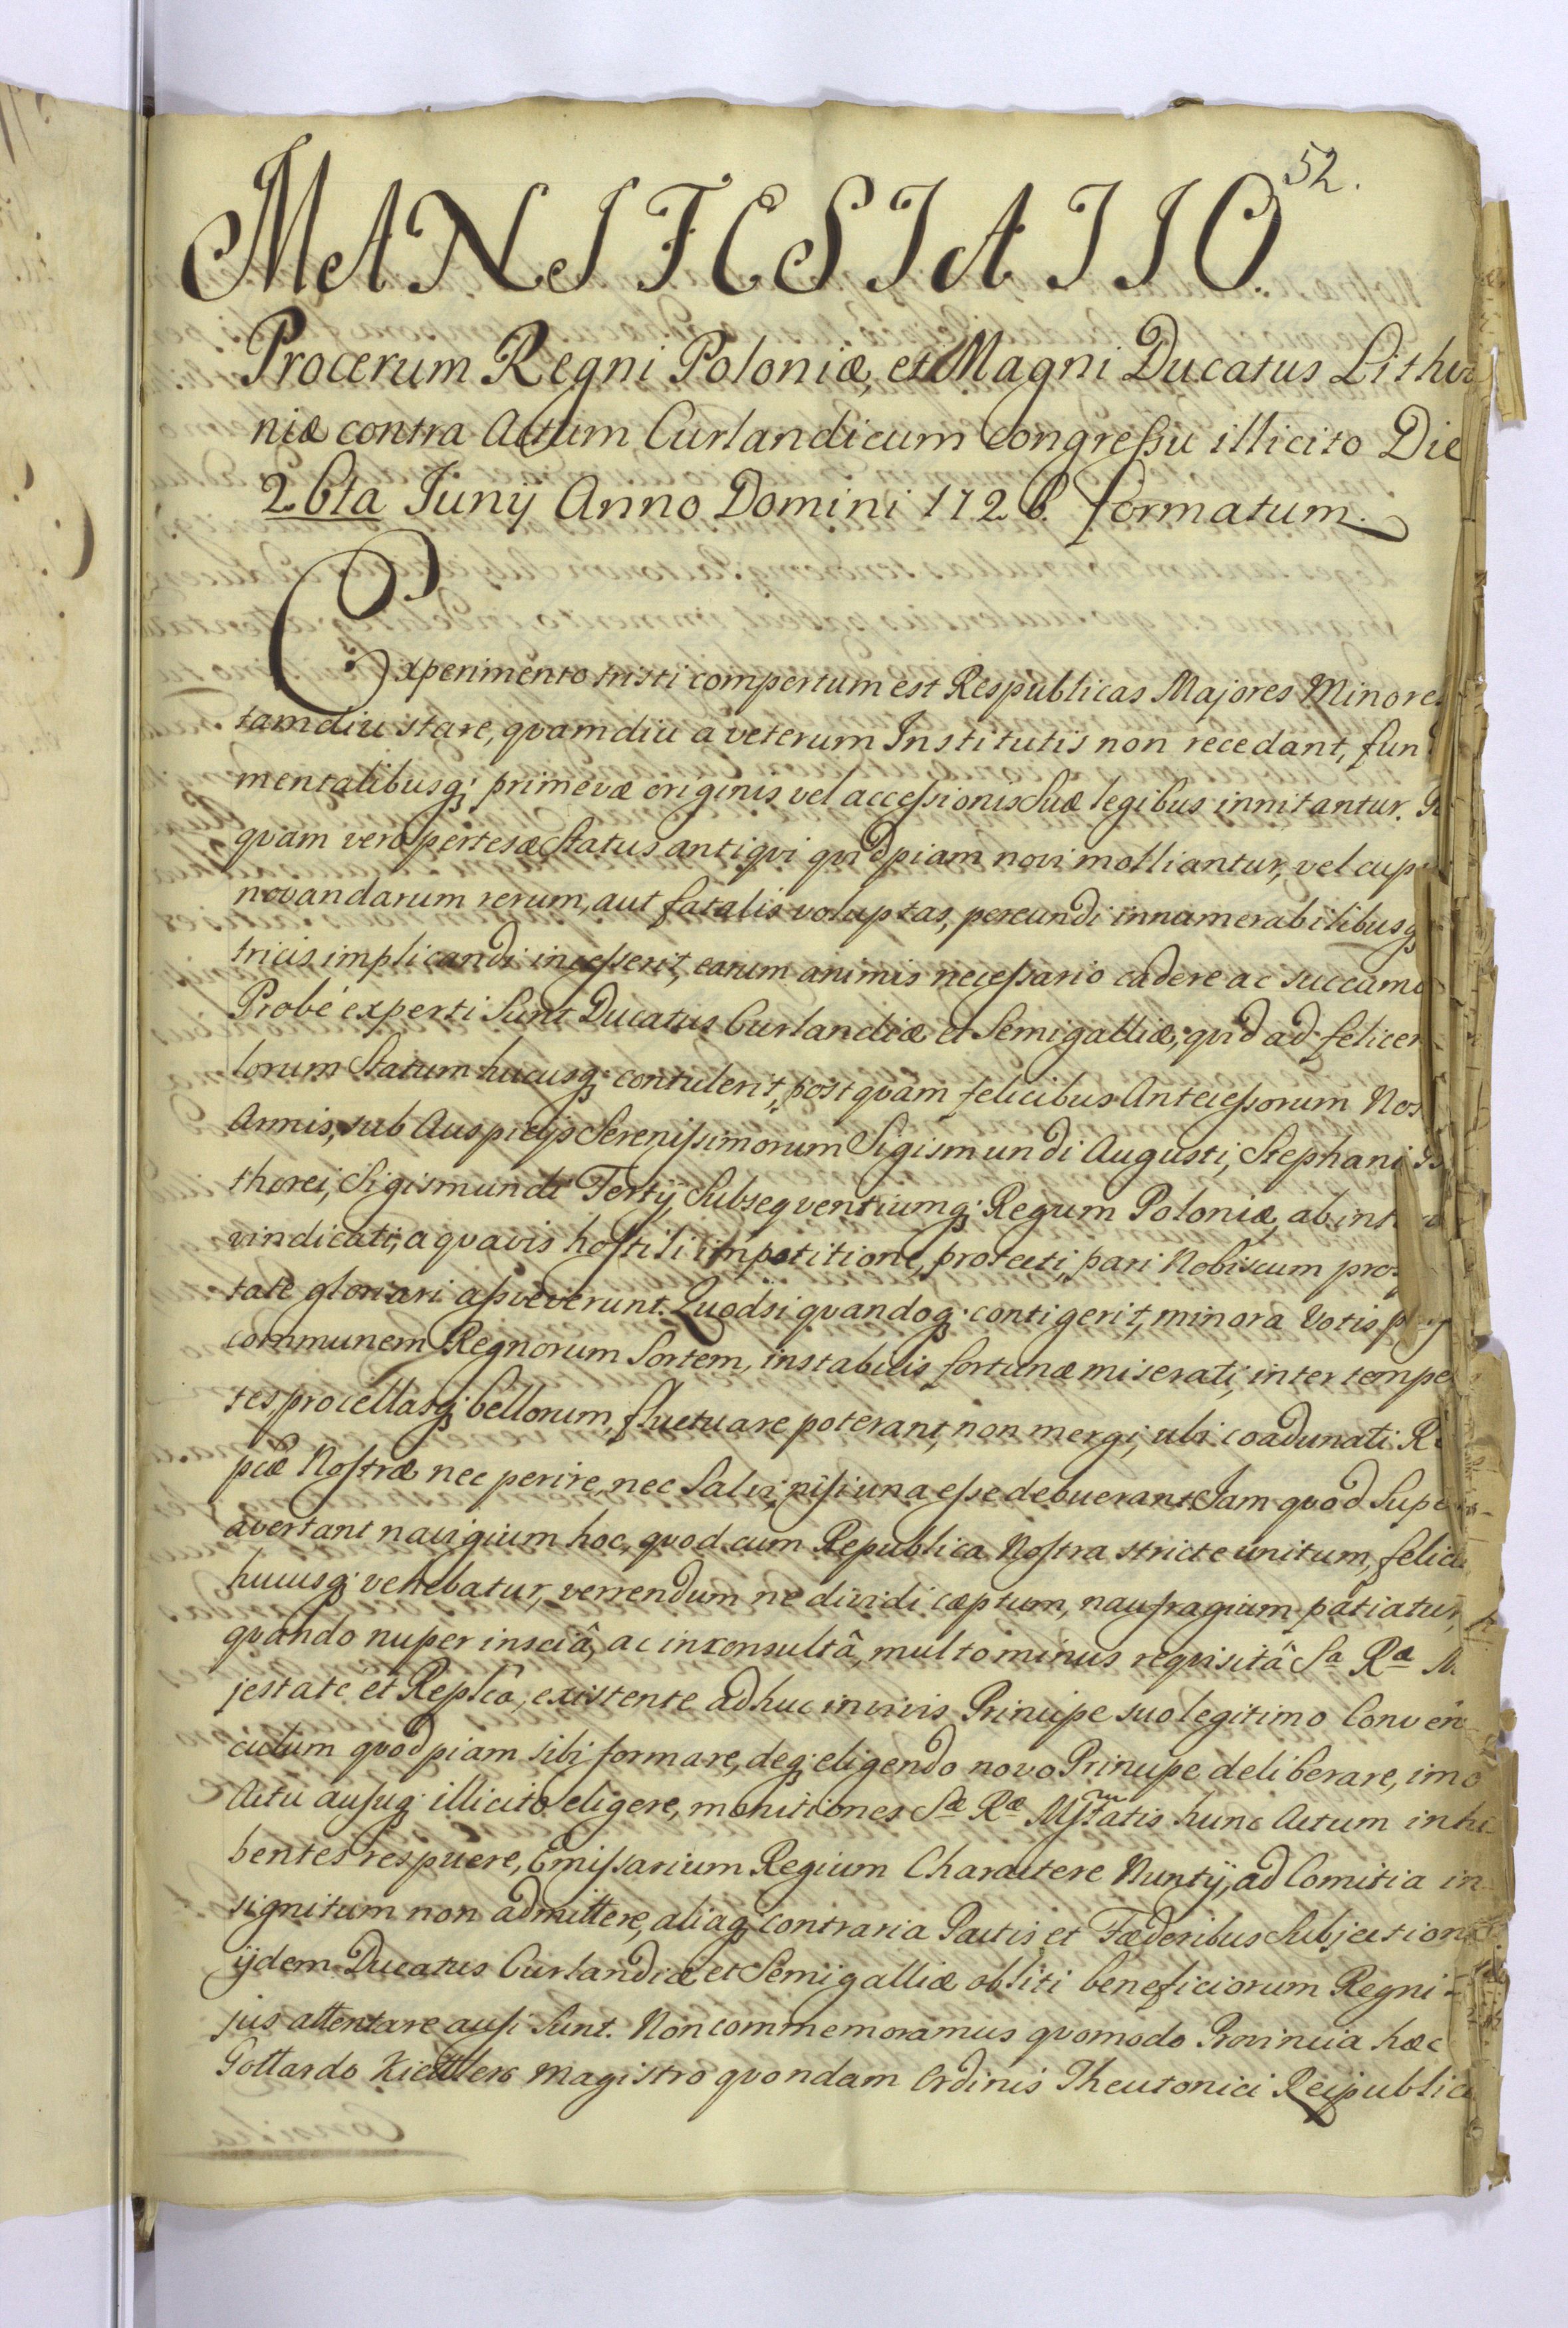 52.
MANIFESTATIO.
Procerum Regni Poloniæ, et Magni Ducatus Lithva
niæ contra Actum Curlandicum congressu illicito Die
26ta Junij Anno Domini 1726. formatum.
Experimento tristi compertum est Respublicas Majores Minores
tamdiu stare, qvamdiu a veterum Institutis non recedant, fun
mentalibusq; primevæ originis vel accessionis Suæ legibus innitantur.
qvam vero pertesæ Status antiqvi qvidpiam novi molliantur, vel cup
novandarum rerum, aut fatalis voluptas, pereundi innumerabilibusq
tricis implicandi incesserit, earum animis necessario cadere ac succum
Probé experti Sunt Ducatus Curlandiæ et Semigalliæ, qvid ad felicem
lorum Statum hucusq; contulerit, postqvam felicibus Antecessorum Nos
Annis, sub Auspicijs Serenissimorum Sigismundi Augusti, Stephani B
thorei, Sigismundi Tertij, Subseqventiumq; Regum Poloniæ, ab int
vindicati, a qvavis hostili impetitione, protecti, pari Nobiscum pros
tate gloriari assveverunt. Quodsi qvandoq; contigerit, minora Votis
communem Regnorum Sortem, instabilis fortunæ miserati, inter tempe
tes, procellasq; bellorum, fluctuare poterant, non mergi, ubi coadunati R
pcæ Nostræ nec perire, nec Salvi, nisi una esse debuerant. Jam qvod Supe
avertant navigium hoc, qvod cum Republica Nostra stricte unitum, felici
hucusq; vehebatur, verendum ne dividi cæptum, naufragium patiatur,
qvando nuper insciâ, ac inconsultâ, multo minus reqvisitâ Sa Ræ M
jestate et Replcâ, existente adhuc in vivis Principe suo legitimo Conven
culum qvodpiam sibi formare, deq; eligendo novo Principe deliberare, imo
Actu ausuq; illicito eligere, monitiones Sæ Ræ Mjstatis hunc Actum inhi
bentes respuere, Emissarium Regium Charactere Nuntij, ad Comitia in
signitum non admittere, aliaq; contraria Pactis et Fæderibus Subjection
ijdem Ducatus Curlandiæ et Semigalliæ obliti beneficiorum Regni
jus attentare ausi Sunt. Non commemoramus qvomodo Provincia hæc
Gottardo Kiettlero Magistro qvondam Ordinis Theutonici Reipublicæ